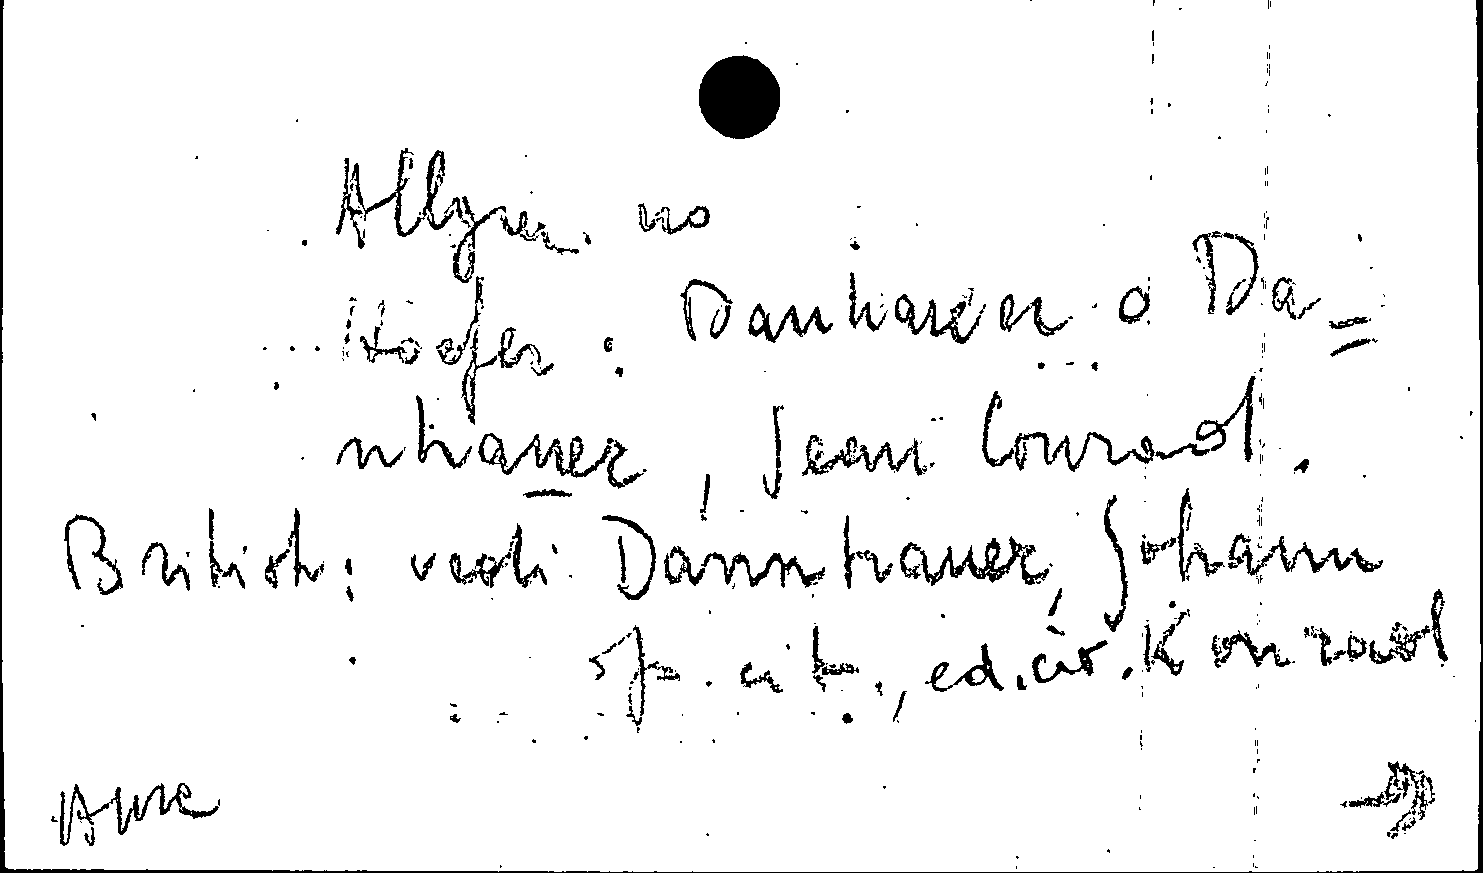 Allgem. no
Hoefer: Danhawer o Da=
nhauer, Jean Conrad.
British: vedi Dannhauer, Johann
op. cit., ed. cit. Konrad